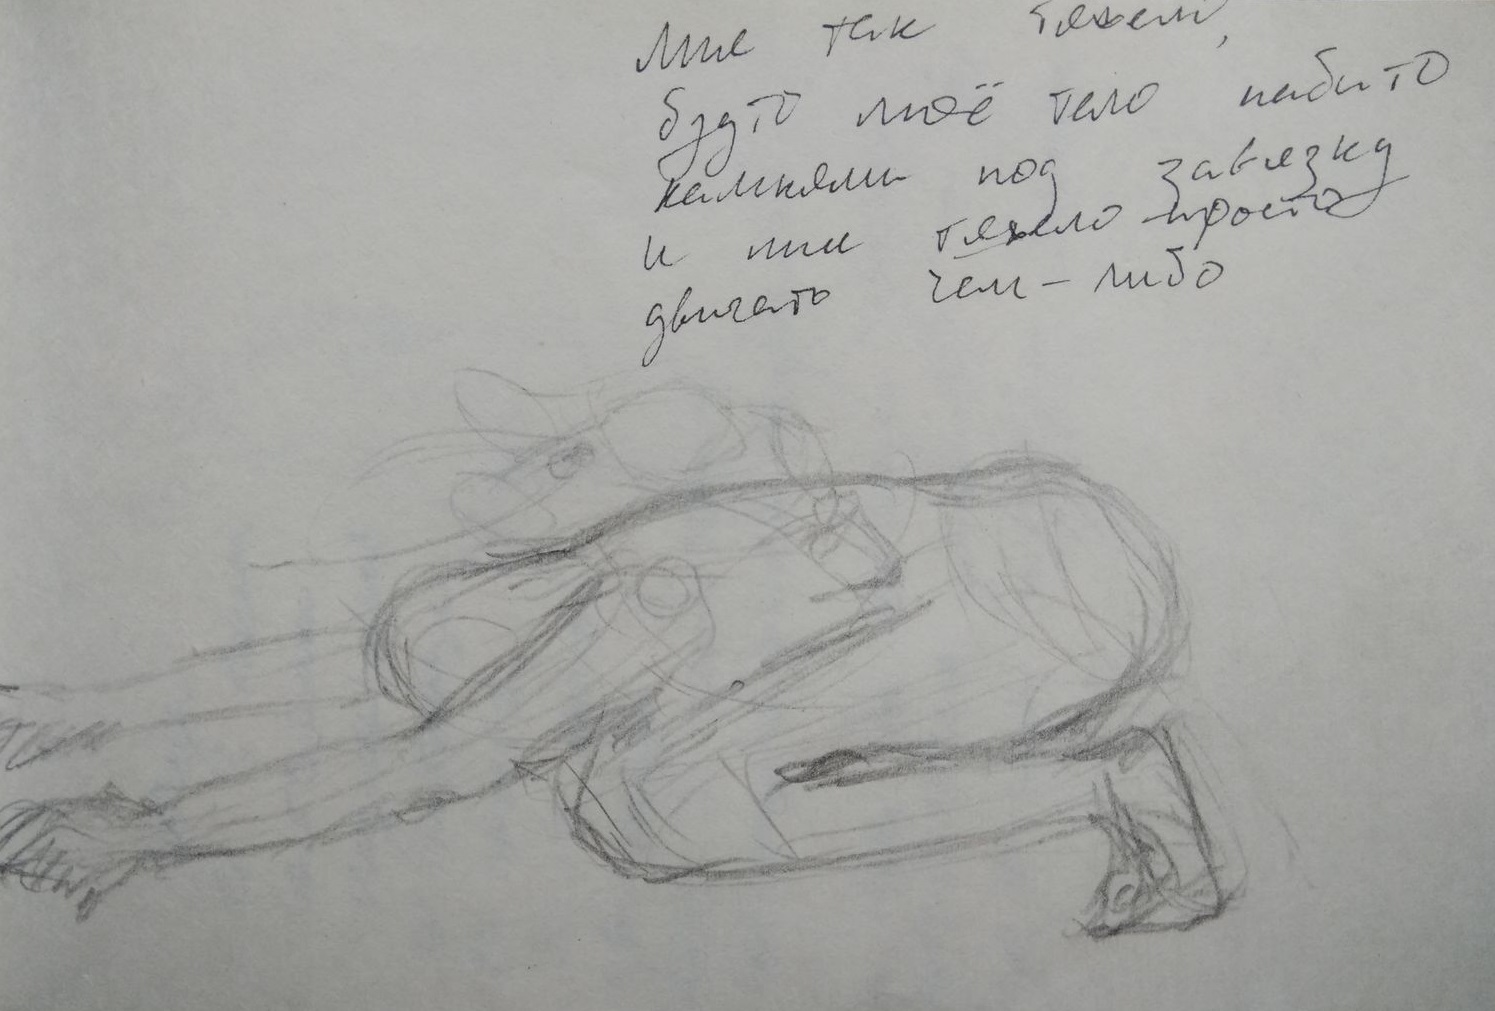 Мне так тяжело,
будто моё тело набито
камнями под завязку
и мне тяжело просто
двигать чем-либо